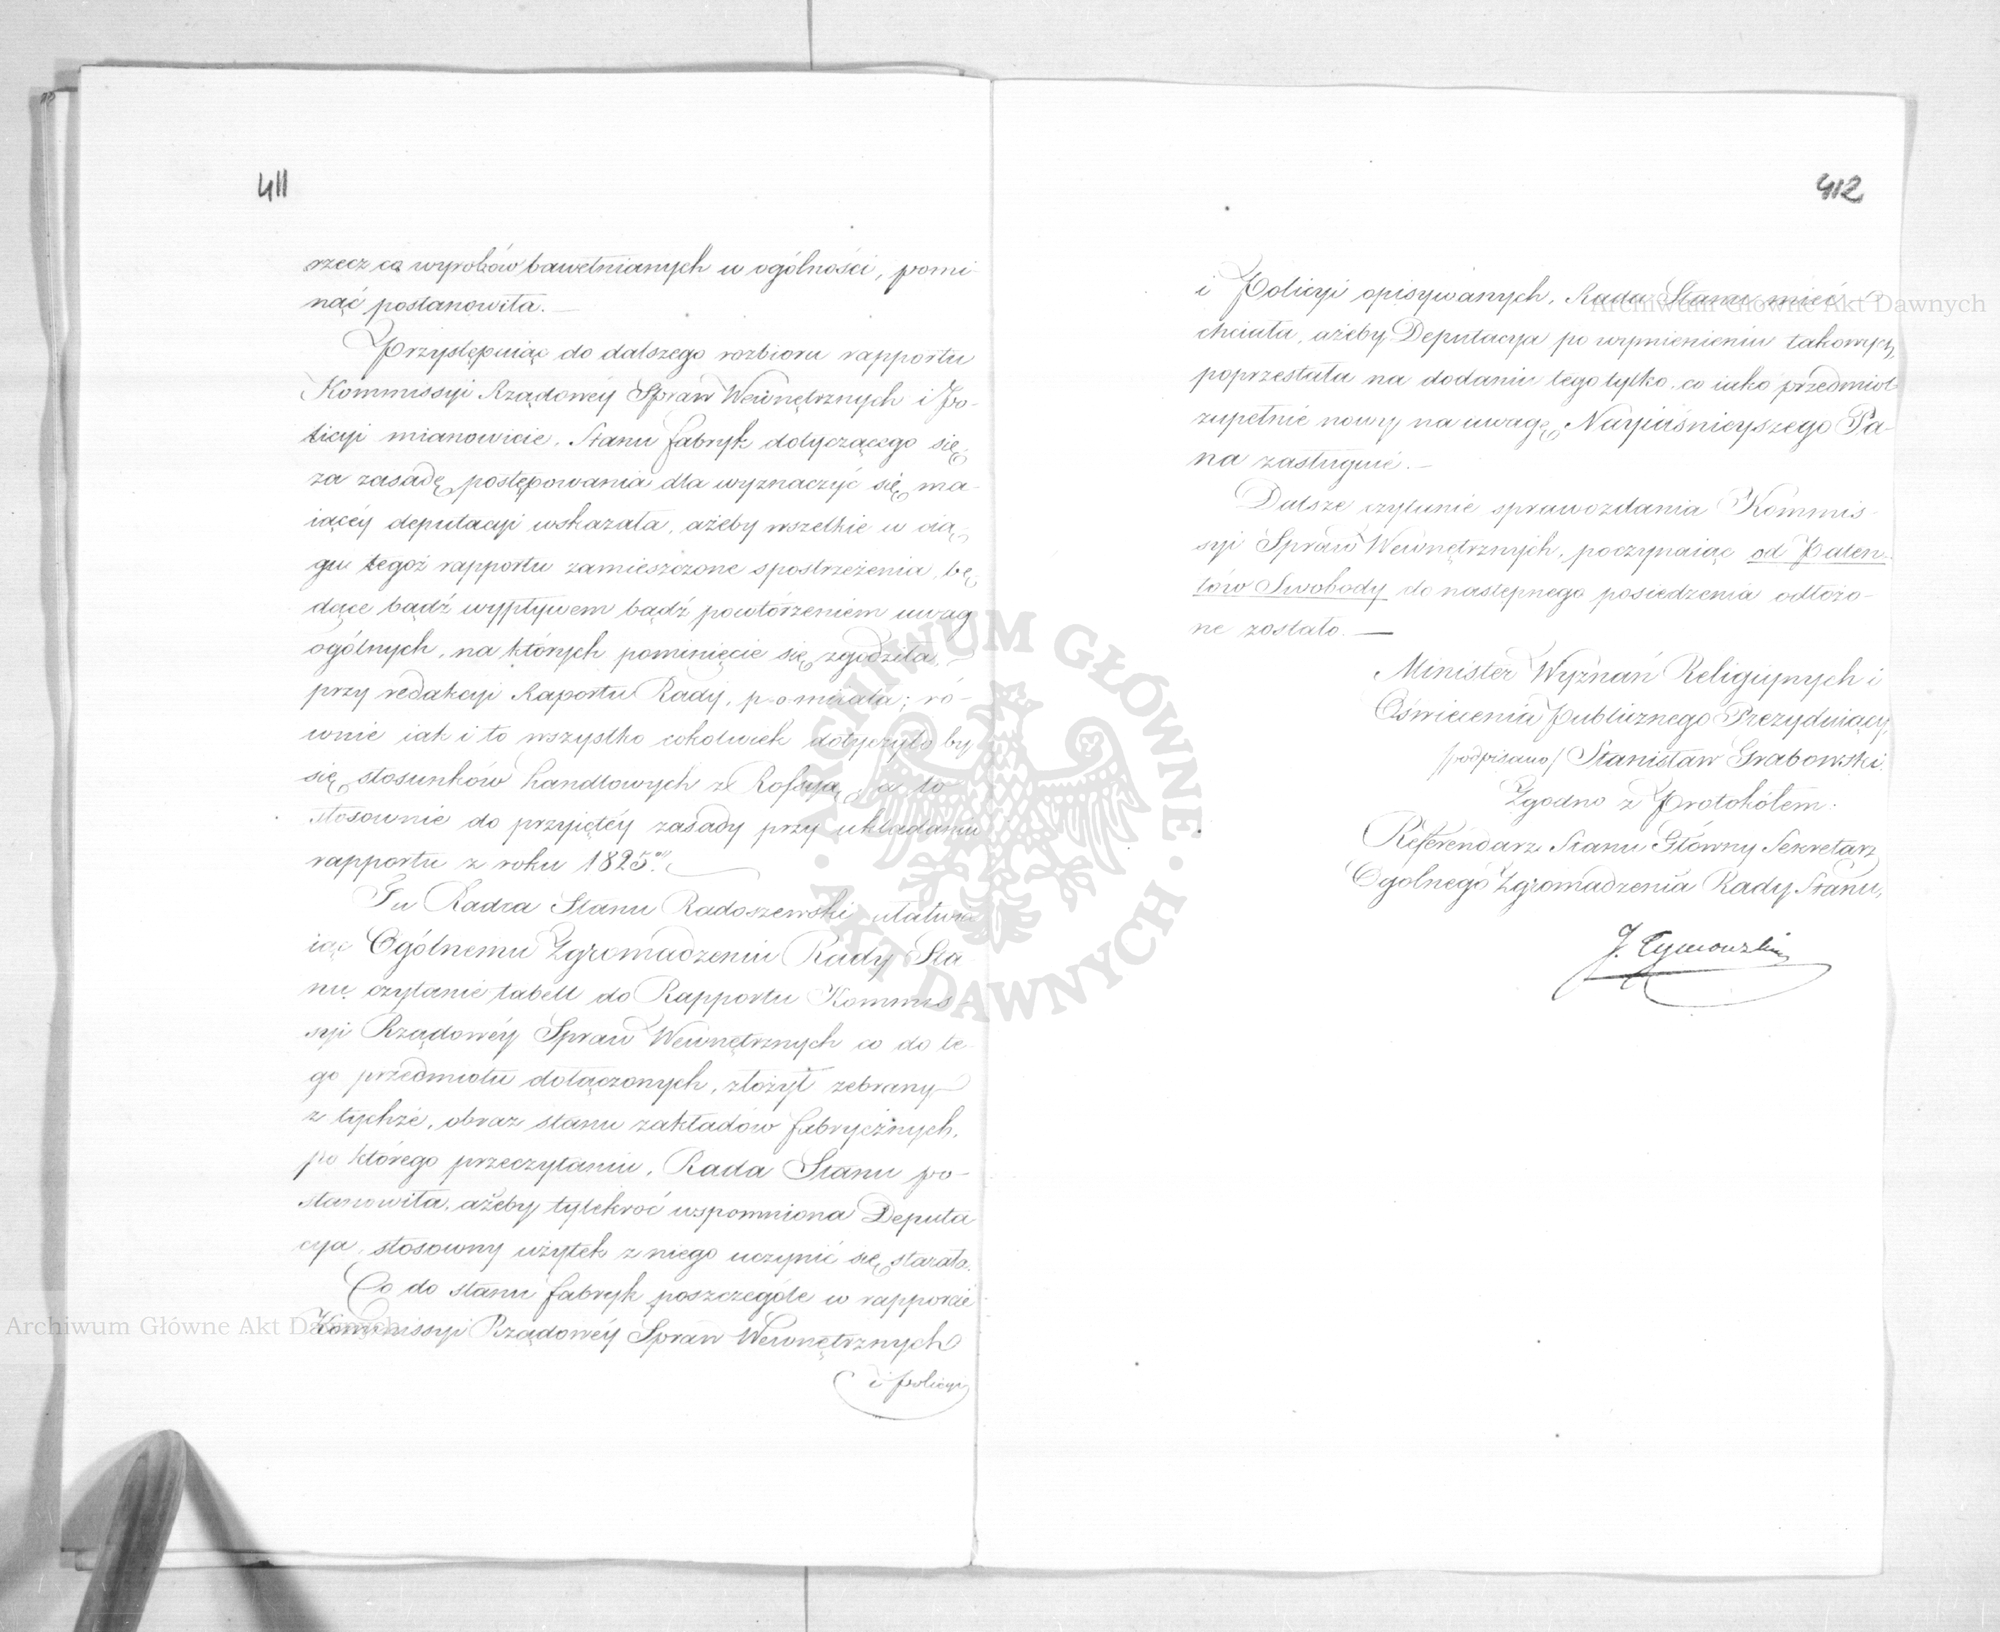 411
rzecz co wyrobów bawełnianych w ogólności, pomi-
nąć postanowiła. —
Przystępuiąc do dalszego rozbioru rapportu
Kommissyi Rządowéy Spraw Wewnętrznych i Po-
licyi mianowicie, Stanu fabryk dotyczącego się,
za zasadę postępowania dla wyznaczyć się ma-
iącéy deputacyi wskazała, ażeby wszelkie w cią-
gu tegoż rapportu zamieszczone spostrzeżenia, bę-
dące bądź wypływem bądź powtórzeniem uwag
ogólnych, na których pominięcie się zgodziła,
przy redakcyi Raportu Rady, pomiiała; ró-
wnie iak i to wszystko cokolwiek dotyczyło by
się stosunków handlowych z Rossyą, a to
stosownie do przyiętéy zasady przy układaniu
rapportu z roku 1825.
Tu Radca Stanu Radoszewski ułatwia
iąc Ogólnemu Zgromadzeniu Rady Sta-
nu, czytanie tabell do Rapportu Kommis-
syi Rządowéy Spraw Wewnętrznych co do te-
go przedmiotu dołączonych, złożył zebrany
z tychże, obraz stanu zakładów fabrycznych,
po którego przeczytaniu, Rada Stanu po-
stanowiła, ażeby tylekroć wspomniona Deputa
cya, stosowny użytek z niego uczynić się starała.
Co do stanu fabryk poszczególe w rapporcie
Kommissyi Rządowéy Spraw Wewnętrznych
i policyi
412
i Policyi opisywanych, Rada Stanu mieć
chciała, ażeby Deputacya po wymienieniu takowych,
poprzestała na dodaniu tego tylko, co iako przedmiot
zupełnie nowy na uwagę Nayiaśnieyszego Pa-
na zasługuie. —
Dalsze czytanie sprawozdania Kommis-
syi Spraw Wewnętrznych, poczynaiąc od Paten-
tów Swobody do następnego posiedzenia odłożo-
ne zostało. —
Minister Wyznań Religiynych i
Oświecenia Publicznego Prezyduiący,
/podpisano/ Stanisław Grabowski.
Zgodno z Protokółem:
Referendarz Stanu Główny Sekretarz
Ogolnego Zgromadzenia Rady Stanu,
J. Tymowski
Archiwum Główne Akt Dawnych
Archiwum Główne Akt Dawnych
ARCHIWUM GŁÓWNE
AKT DAWNYCH